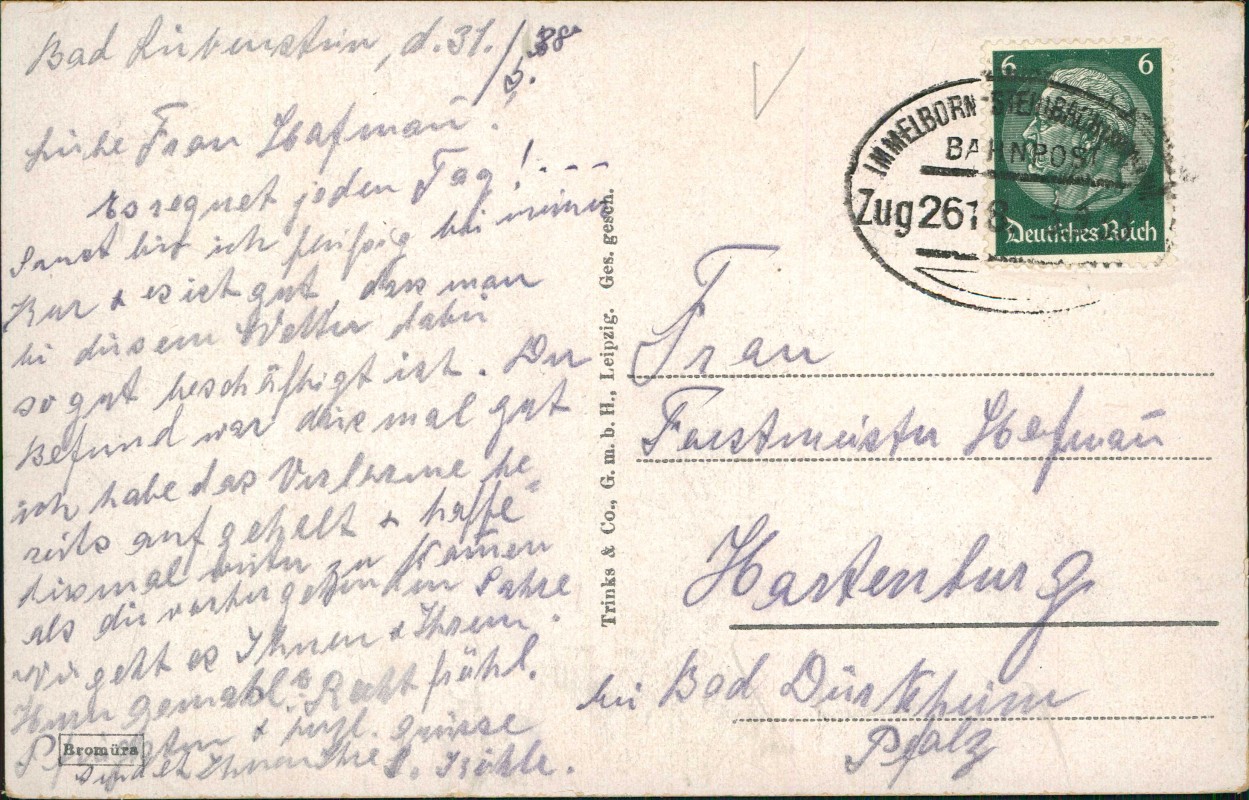 Bad Liebenstein, d. 31./5. 38
Liebe Frau Hofmañ.
Es regnet jeden Tag! - - -
Sonst bin ich fleissig bei meiner
Kur & es ist gut, dass man
bei diesem Wetter dabei
so gut beschäftigt ist. Der
Befund war diesmal gut
ich habe das Verlorene be=
reits aufgeholt & hoffe
diesmal weiter zu kom̃en
als die vorhergehenden Jahre
Wie geht es Ihnen & Ihrem
Herrn Gemahl? Recht fröhl.
& herzl. Grüsse
sendet Ihnen Ihre Köhle.
Bromüra
Trinks & Co., G. m. b. H., Leipzig. Ges. gesch.
IMMELBORN-STEINBACH
BAHNPOST
Zug 2618
6 6
Deutsches Reich
Frau
Forstmeister Hofmañ
Hartenburg
bei Bad Dürkheim
Pfalz